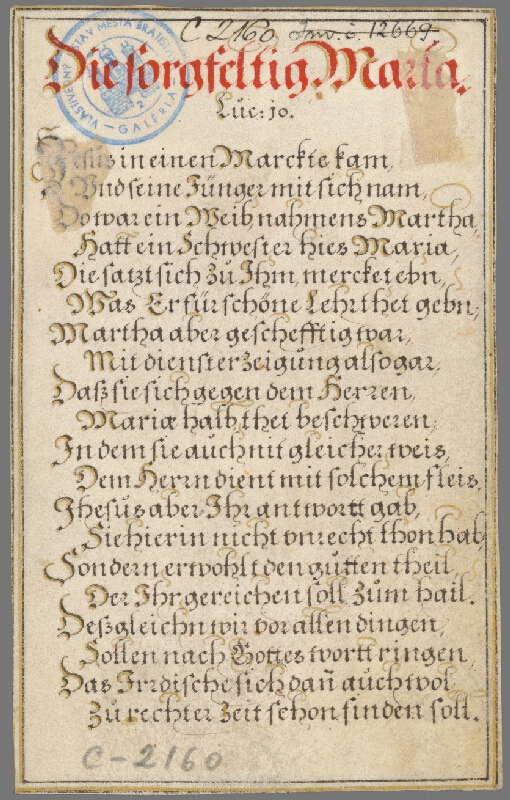 C 2160 Inv. č. 12669.
VLASTIVEDNÝ ÚSTAV MESTA BRATISLAVY – GALÉRIA –
Die sorgfeltig Maria.
Luc: 10.
Jesus in einen Marckte kam,
Vnd seine Jünger mit sich nam,
Do war ein Weib, nahmens Martha,
Hatt ein Schwester hies Maria,
Die satzt sich zu Ihm, mercket ebn,
Was Er für schöne Lehr thet gebn,
Martha aber geschefftig war,
Mit dienst erzeigung also gar,
Daß sie sich gegen dem Herren,
Mariæ halb, thet beschweren,
In dem sie auch nit gleicher weis,
Dem Herrn dient mit solchem fleis.
Jhesus aber Ihr antwortt gab,
Sie hierin nicht vnrecht thon hab
Sondern erwohlt den gutten theil,
Der Ihr gereichen soll zum hail.
Deßgleichn wir vor allen dingen,
Sollen nach Gottes wortt ringen,
Das Irrdische sich dañ auch wol
Zu rechter Zeit schon finden soll.
C-2160